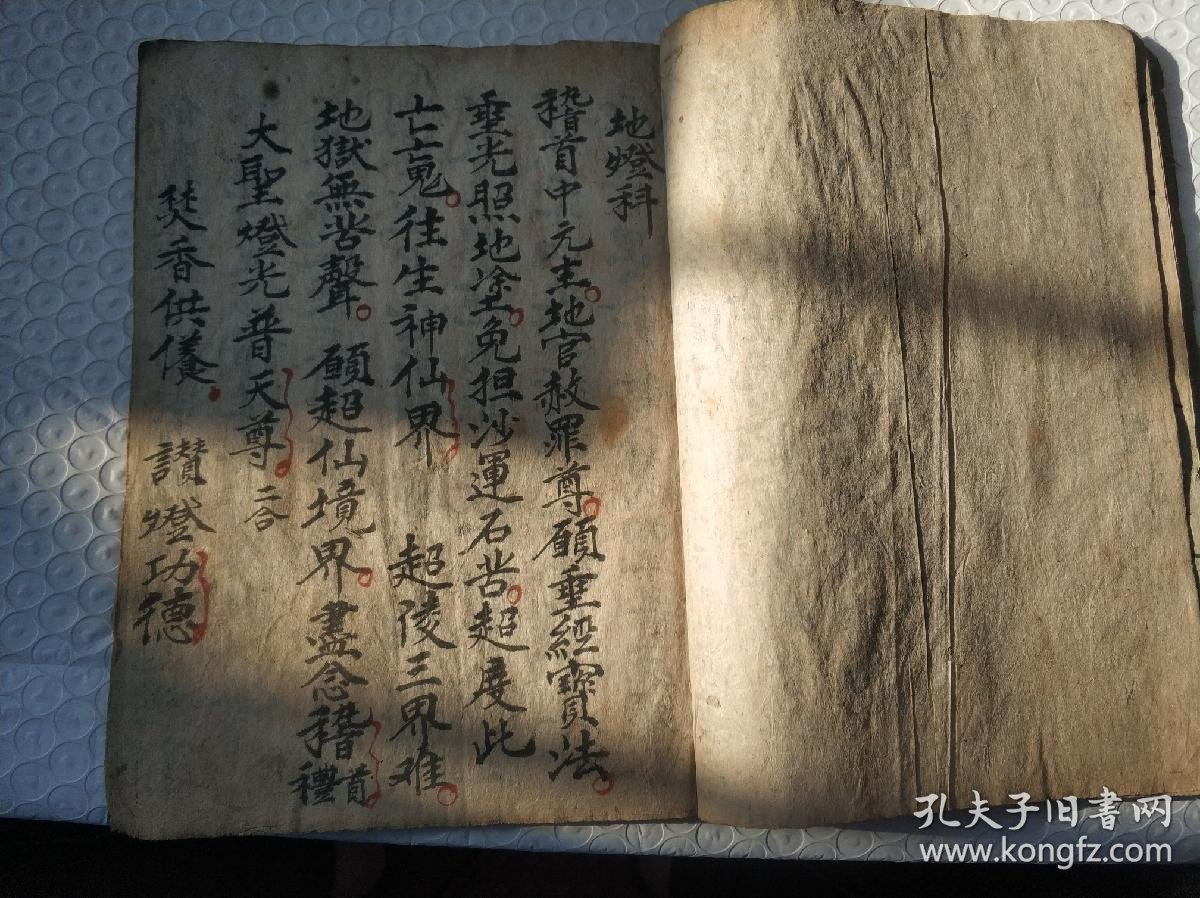 地燈科
稽首中元主。地官赦罪尊。願垂經寶法。
垂光照地塗。免担沙運石苦。超度此
亡亡䰟。往生神仙界 超陵三界难。
地獄無苦聲。願超仙境界。盡念稽首禮
大聖燈光普天尊。二合
焚香供養。讃燈功德
孔夫子旧书网
www.kongfz.com